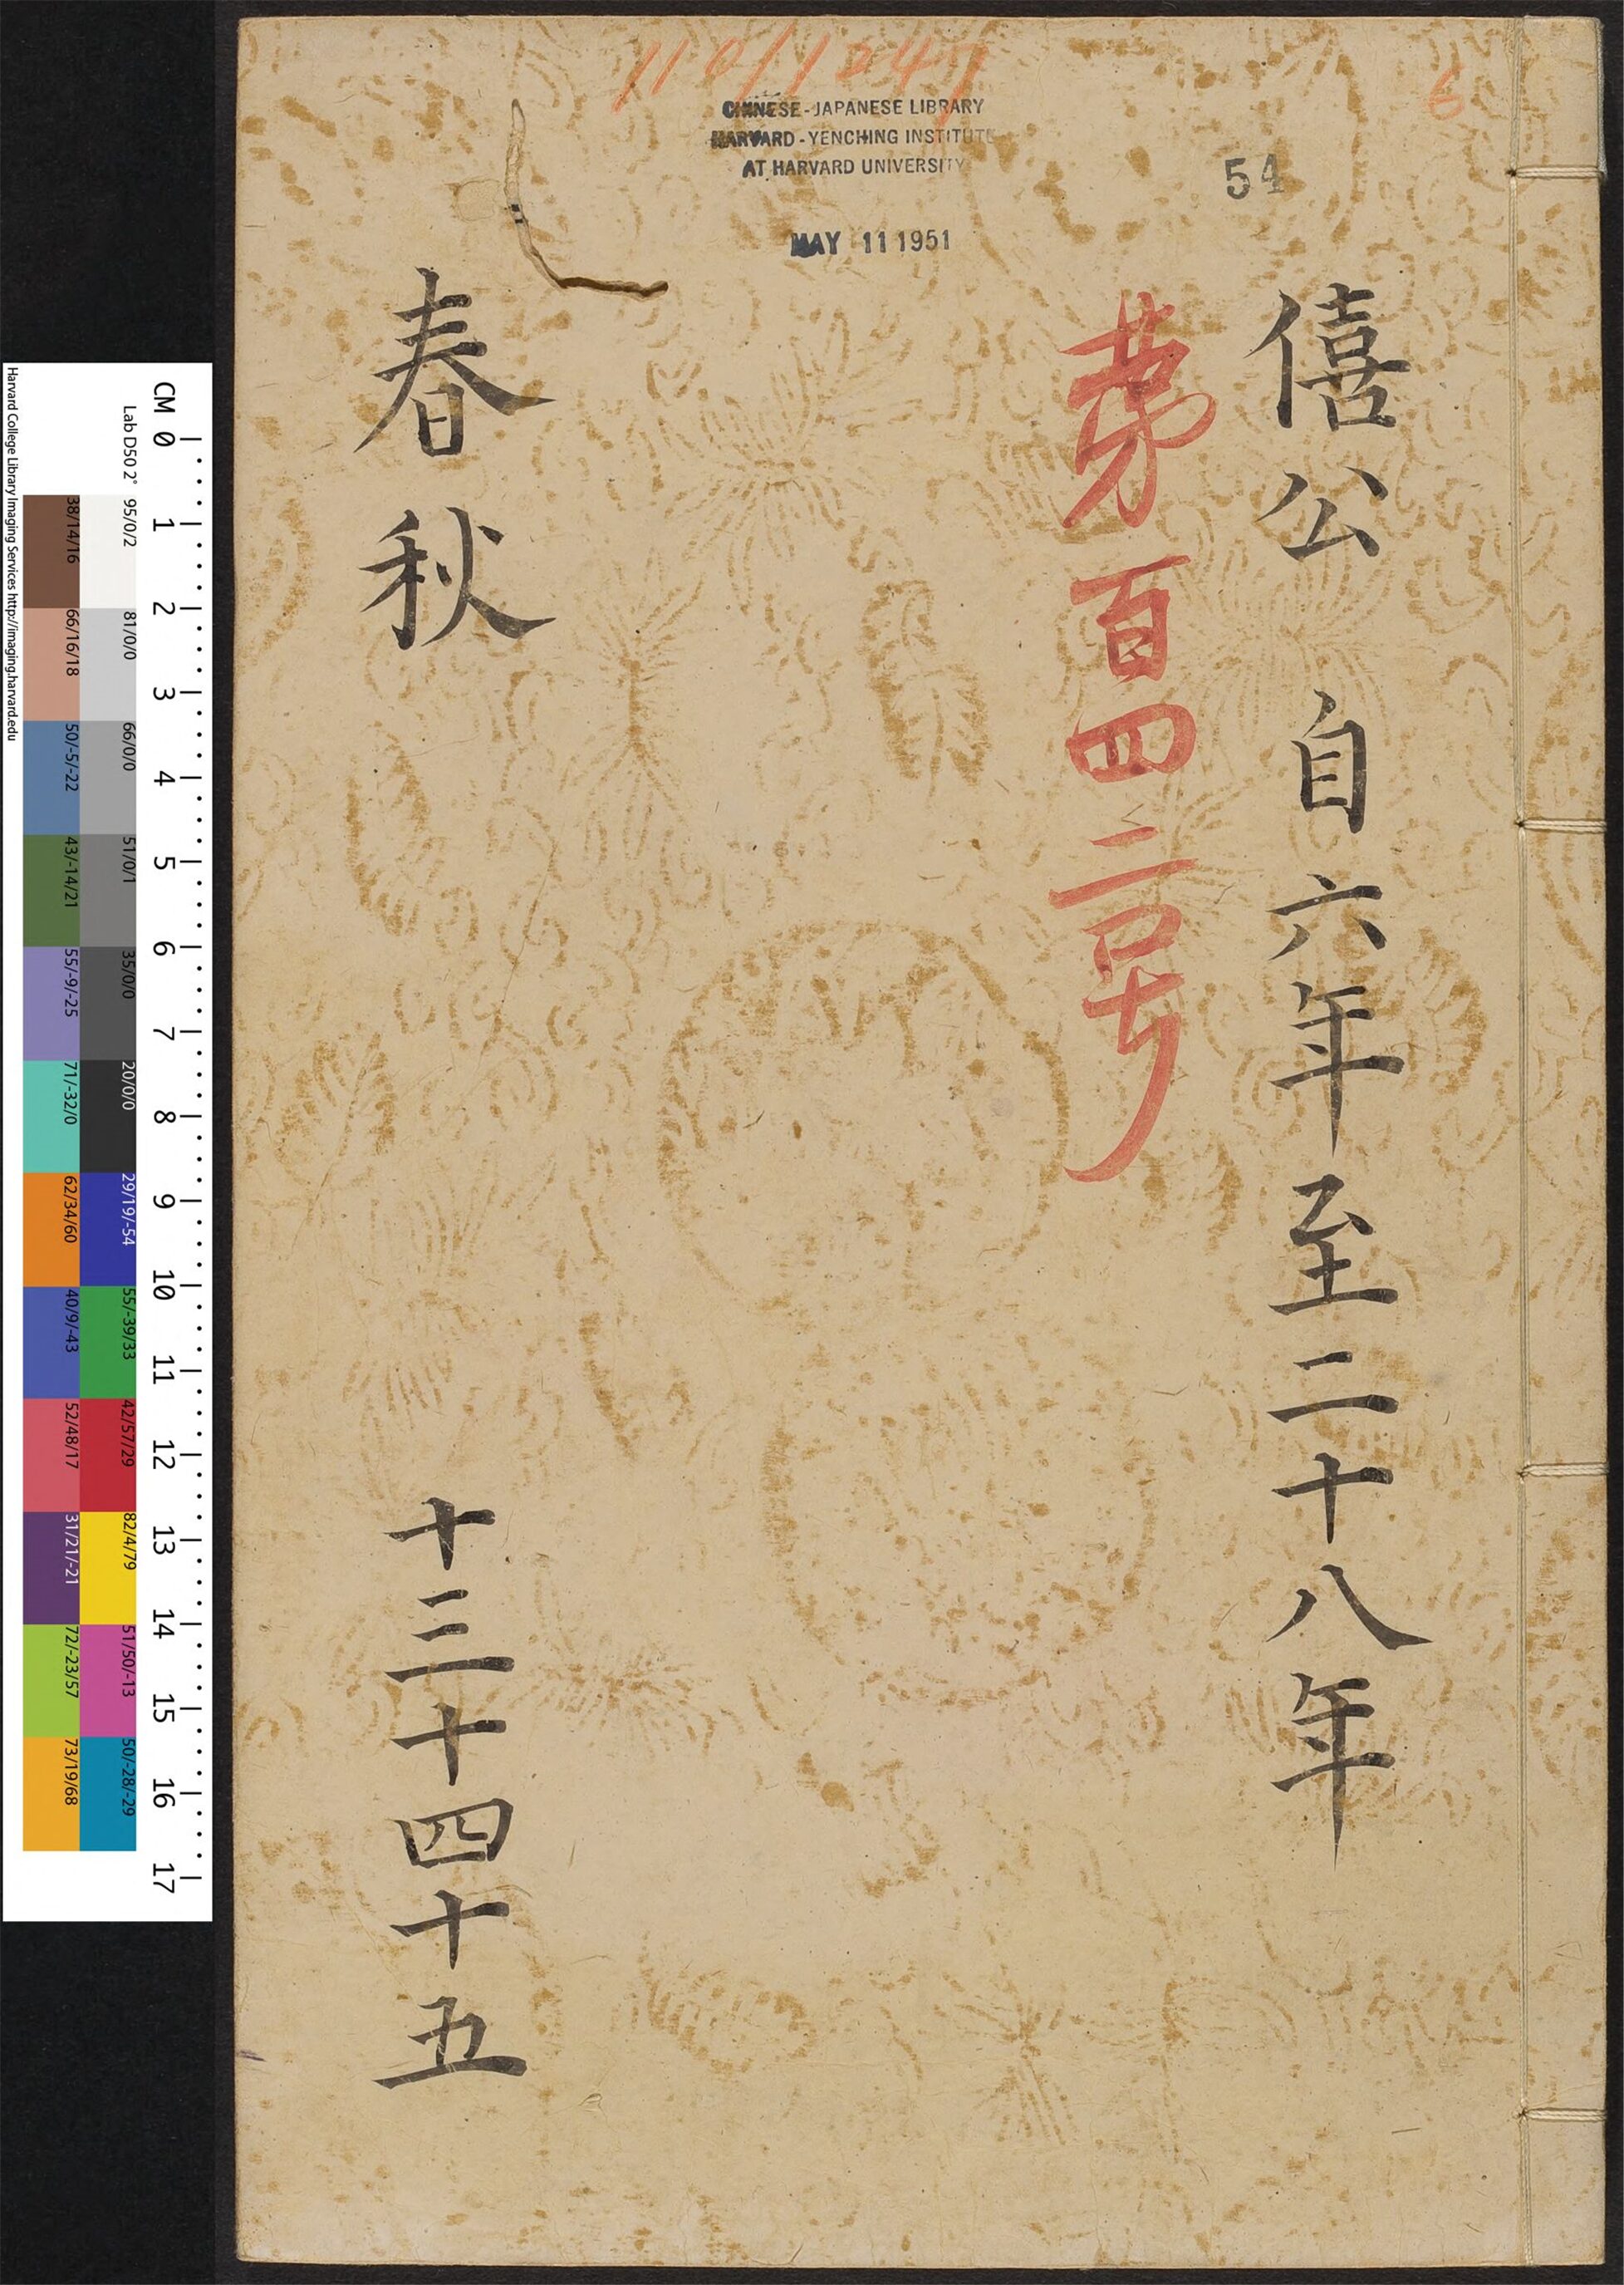 110/1247
6
CHINESE-JAPANESE LIBRARY
HARVARD-YENCHING INSTITUTE
AT HARVARD UNIVERSITY
54
MAY 11 1951
僖公 自六年至二十八年
第百四二号
春秋 十三十四十五
CM 0 1 2 3 4 5 6 7 8 9 10 11 12 13 14 15 16 17
Lab D50 2° 95/0/2 81/0/0 66/0/0 51/0/1 35/0/0 20/0/0 29/19/-54 55/-39/33 42/57/29 82/4/79 51/50/-13 50/-28/-29
38/14/16 66/16/18 50/-5/-22 43/-14/21 55/-9/-25 71/-32/0 62/34/60 40/9/-43 52/48/17 31/21/-21 72/-23/57 73/19/68
Harvard College Library Imaging Services http://imaging.harvard.edu